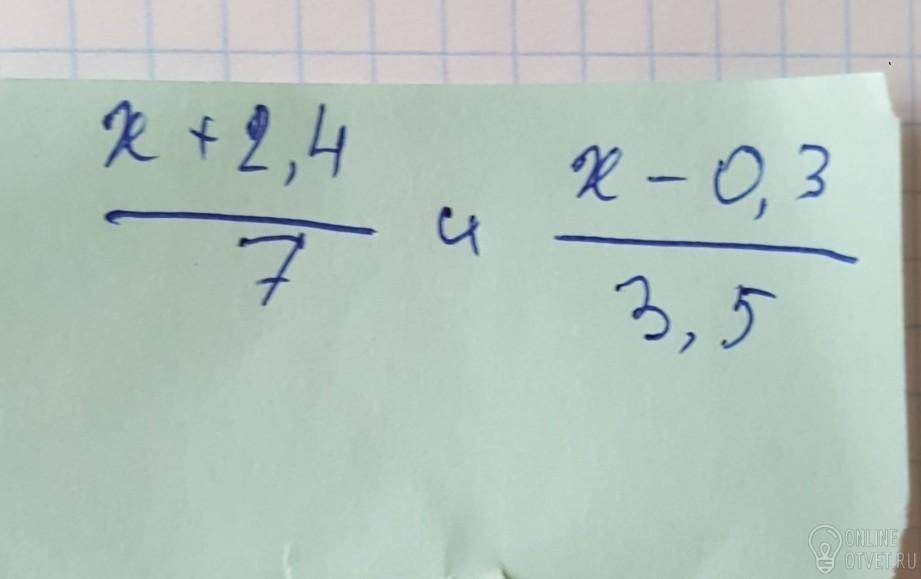 x + 2,4
7
и
x - 0,3
3,5
ONLINE
OTVET.RU